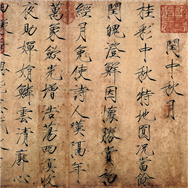 閏中秋月
桂彩中秋特地圓況當餘
閏魄澄鮮因懷勝賞初
經月免使詩人歎隔年
萬象斂光增浩蕩四溟收
夜助嬋娟鱗雲清廓心